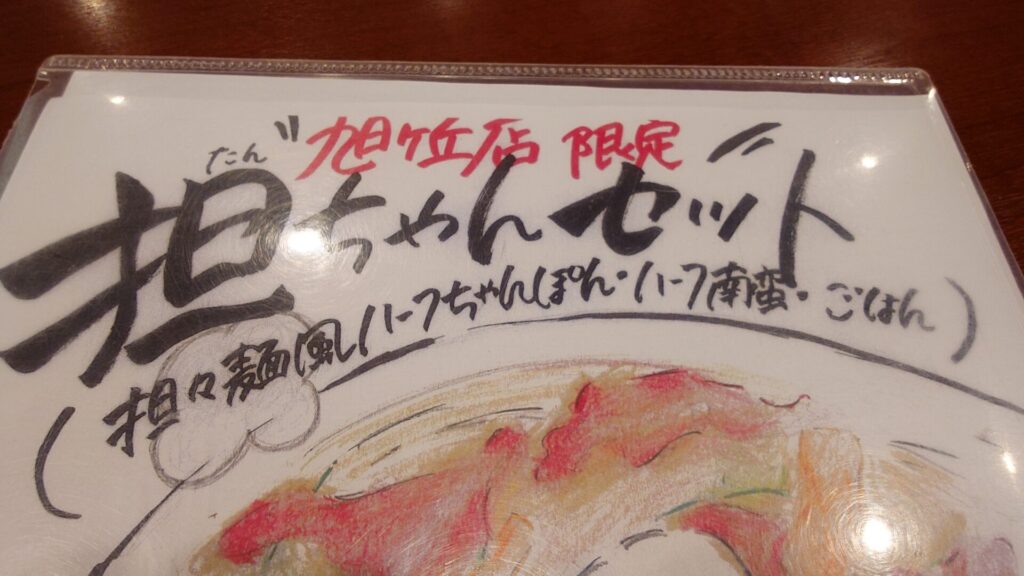 〃旭ヶ丘店 限定〃
たん
担ちゃんセット
(担々麺風ハーフちゃんぽん・ハーフ南蛮・ごはん)